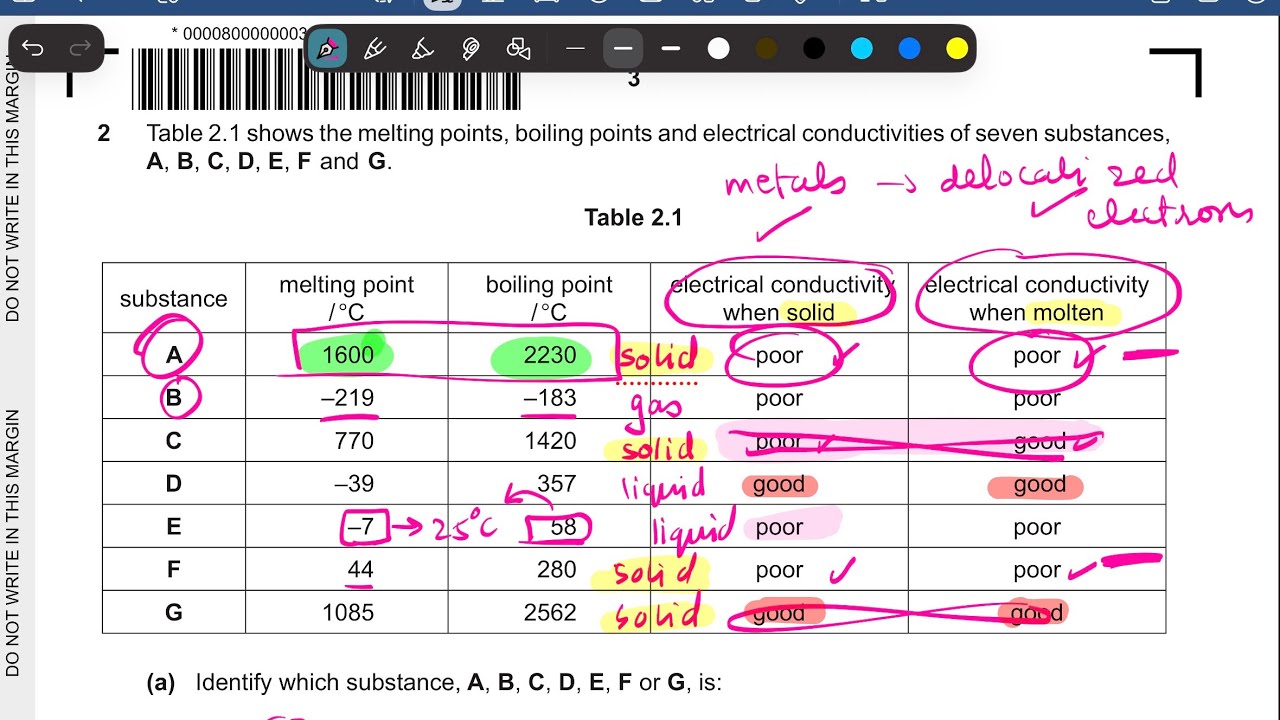 * 0000800000003
DO NOT WRITE IN THIS MARGIN
3
2 Table 2.1 shows the melting points, boiling points and electrical conductivities of seven substances,
A, B, C, D, E, F and G.
metals → delocalized
electrons
Table 2.1
substance melting point /°C boiling point /°C electrical conductivity when solid electrical conductivity when molten
A 1600 2230 solid poor poor
B –219 –183 gas poor poor
C 770 1420 solid poor good
D –39 357 liquid good good
E –7 → 25°C 58 liquid poor poor
F 44 280 solid poor poor
G 1085 2562 solid good good
DO NOT WRITE IN THIS MARGIN
(a) Identify which substance, A, B, C, D, E, F or G, is: